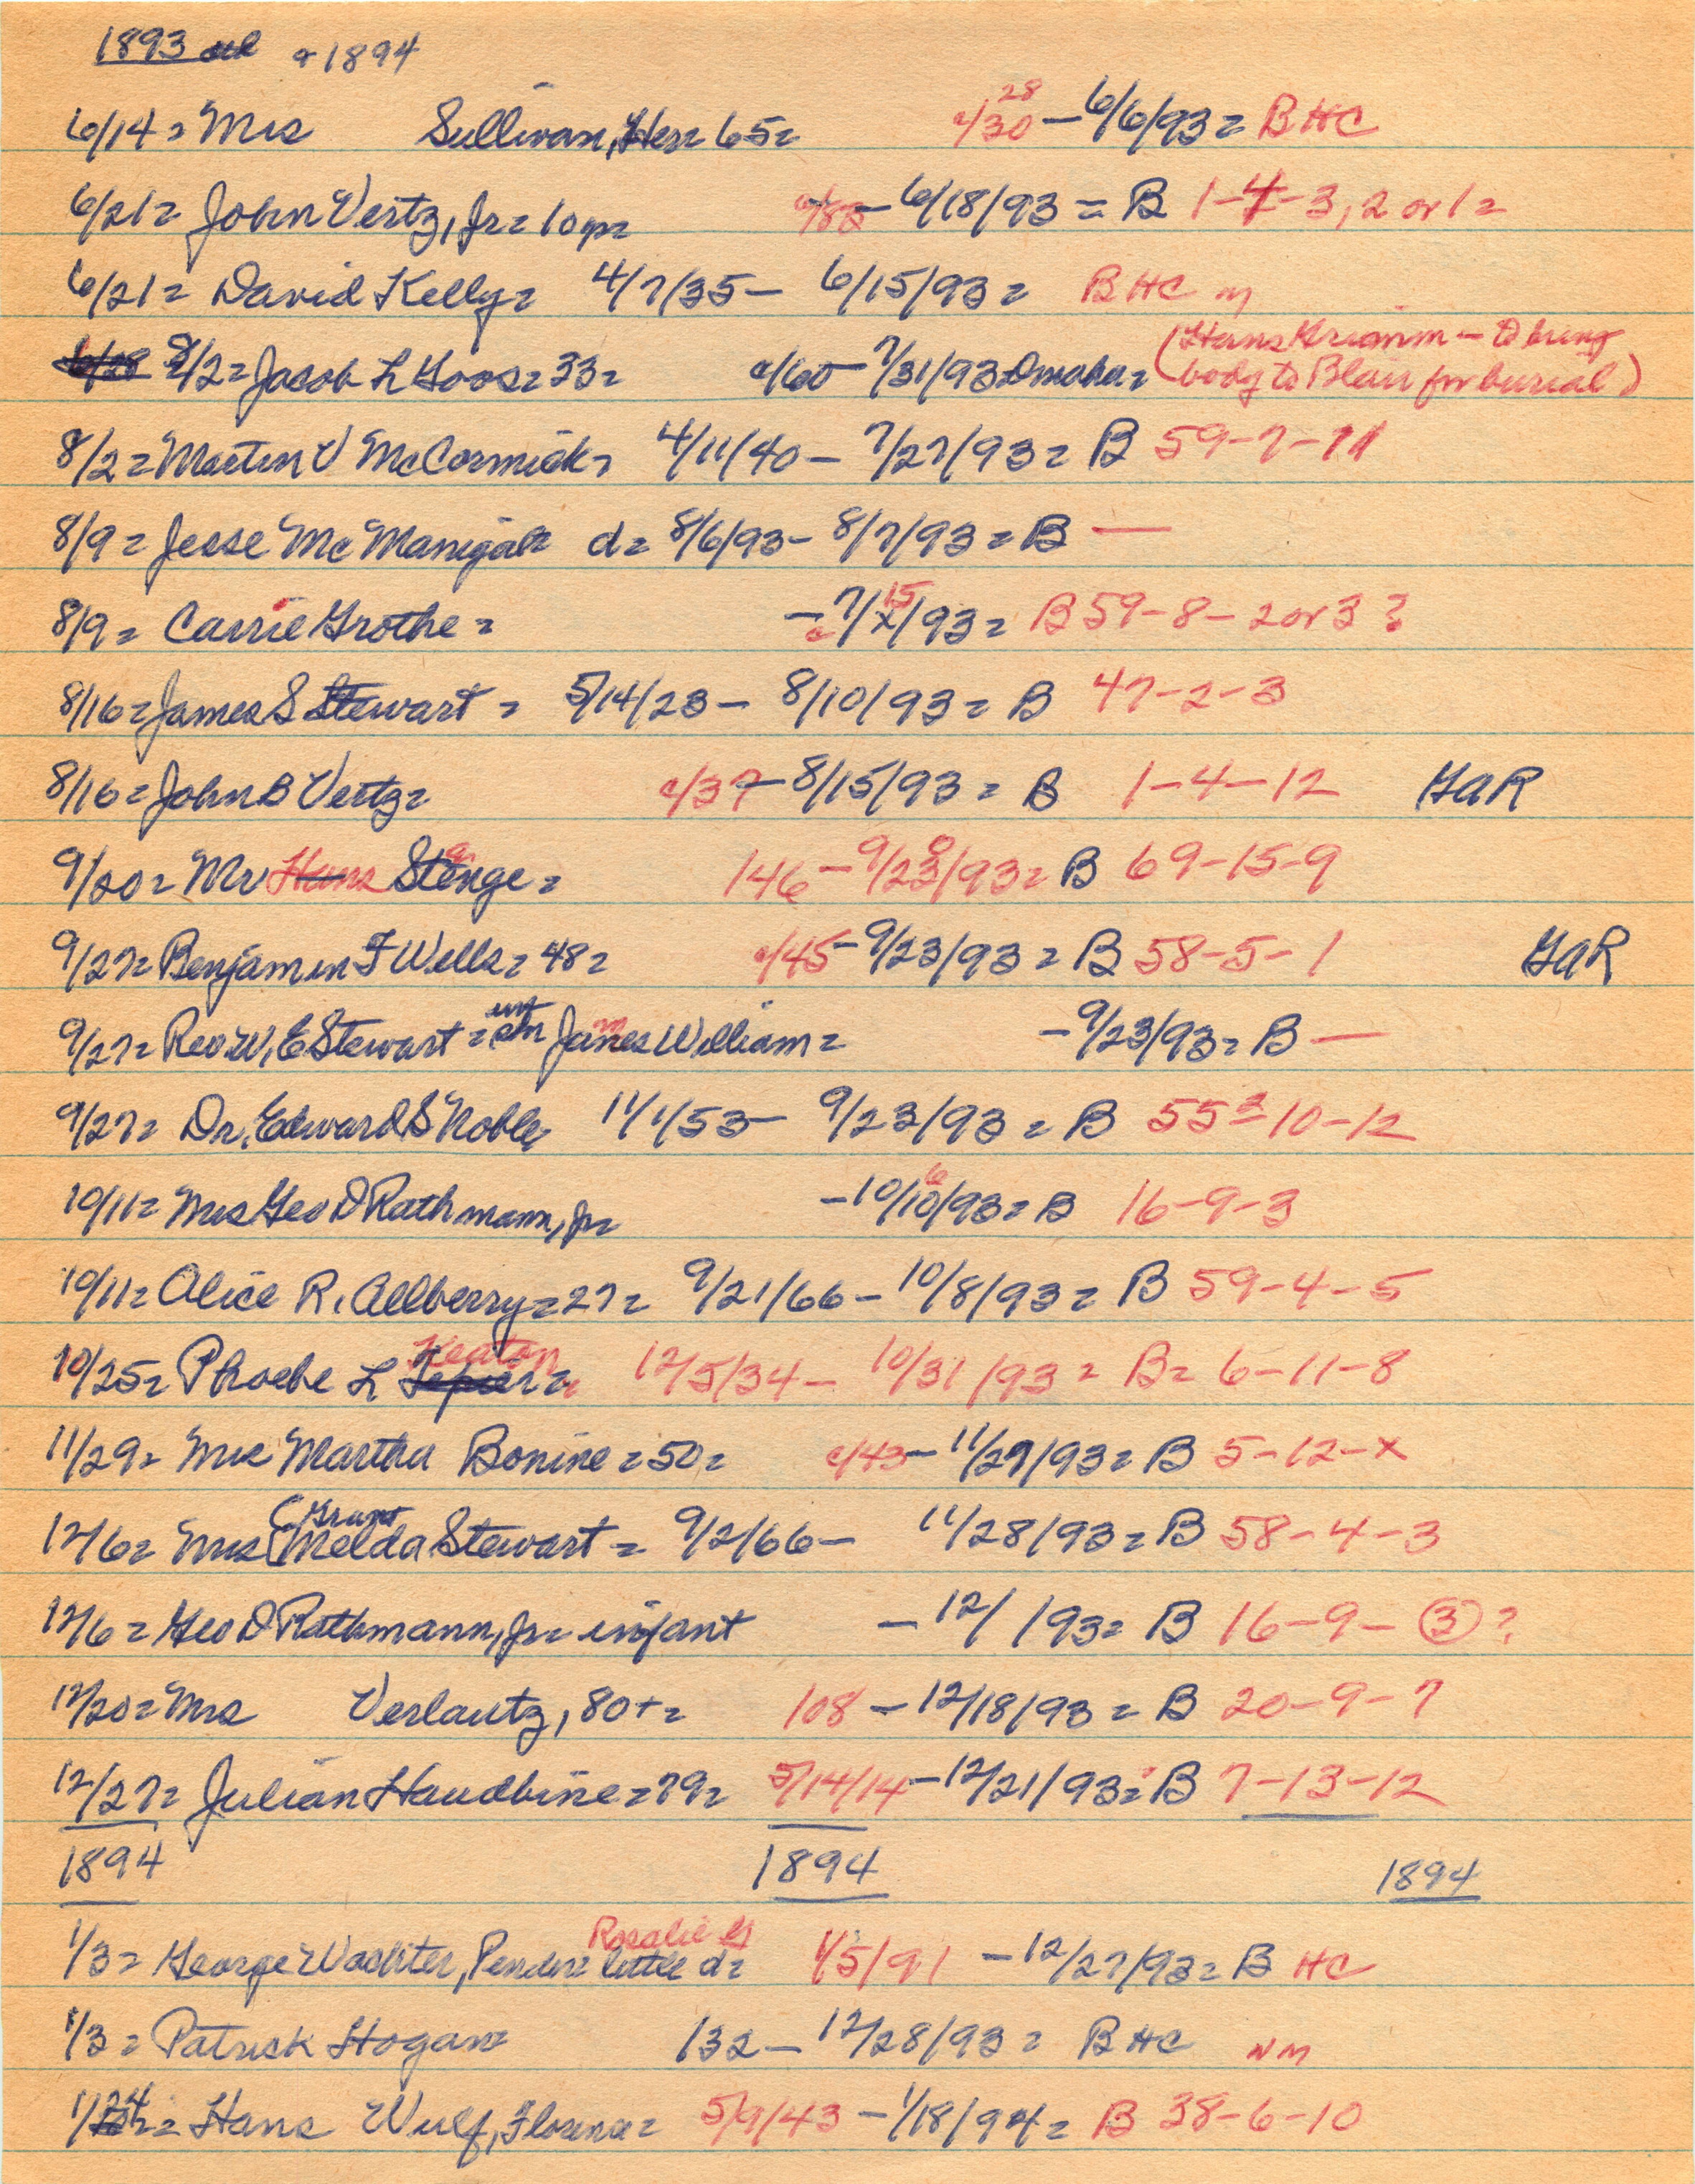 1893 & 1894
6/14= Mrs Sullivan, Her= 65= c/30 28 - 6/6/93= B HC
6/21= John Vertz, Jr= 10 yr= - 6/18/93 = B 1-4-3, 2 or 1=
6/21= David Kelly= 4/7/35- 6/15/93= B HC m
6/28 8/2= Jacob L Goos= 33= c/60- 7/31/93=Omaha= (Hans Krumm - to bring
body to Blair for burial)
8/2= Martin V McCormick= 4/11/40- 7/27/93= B 59-7-11
8/9= Jesse McManigal= d= 8/6/93- 8/7/93=B —
8/9= Carrie Grothe= - 7/x/93= 15 B 59-8-2 or 3?
8/16=James S Stewart= 5/14/23- 8/10/93= B 47-2-3
8/16=John B Vertz= c/37-8/15/93= B 1-4-12 GAR
9/20= Mr Hans Stenge= a 146-9/23/93= B 69-15-9
9/27= Benjamin F Wells= 48= c/45-9/23/93= B 58-5-1 GAR
9/27= Rev. W. E Stewart= inf James William= -9/23/93= B —
9/27= Dr. Edward S Noble 11/1/53- 9/23/93= B 55-10-12
10/11= Mrs Geo D Rathmann, Jr= -10/10/93= B 6 16-9-3
10/11= Alice R. Allberry=27= 9/21/66-10/8/93= B 59-4-5
10/25= Phoebe L Heaton 12/5/34- 10/31/93= B= 6-11-8
11/29= Mrs Martha Bonine=50= c/43-11/29/93= B 5-12-x
12/6= Mrs (Grant Melda Stewart= 9/2/66- 11/28/93= B 58-4-3
12/6= Geo D Rathmann, Jr= infant -12/ /93= B 16-9-(3)?
12/20= Mrs Verlautz, 80+= 108 -12/18/93= B 20-9-7
12/27= Julian Haudbine=79= 5/14/14-12/21/93= B 7-13-12
1894 1894 1894
1/3= George Wachter, Pender= little d= Rosalie G 1/5/91 -12/27/93= B HC
1/3= Patrick Hogan= 132-12/28/93= B HC NM
1/24= Hans Wulf, Florence= 5/9/43-1/18/94= B 38-6-10